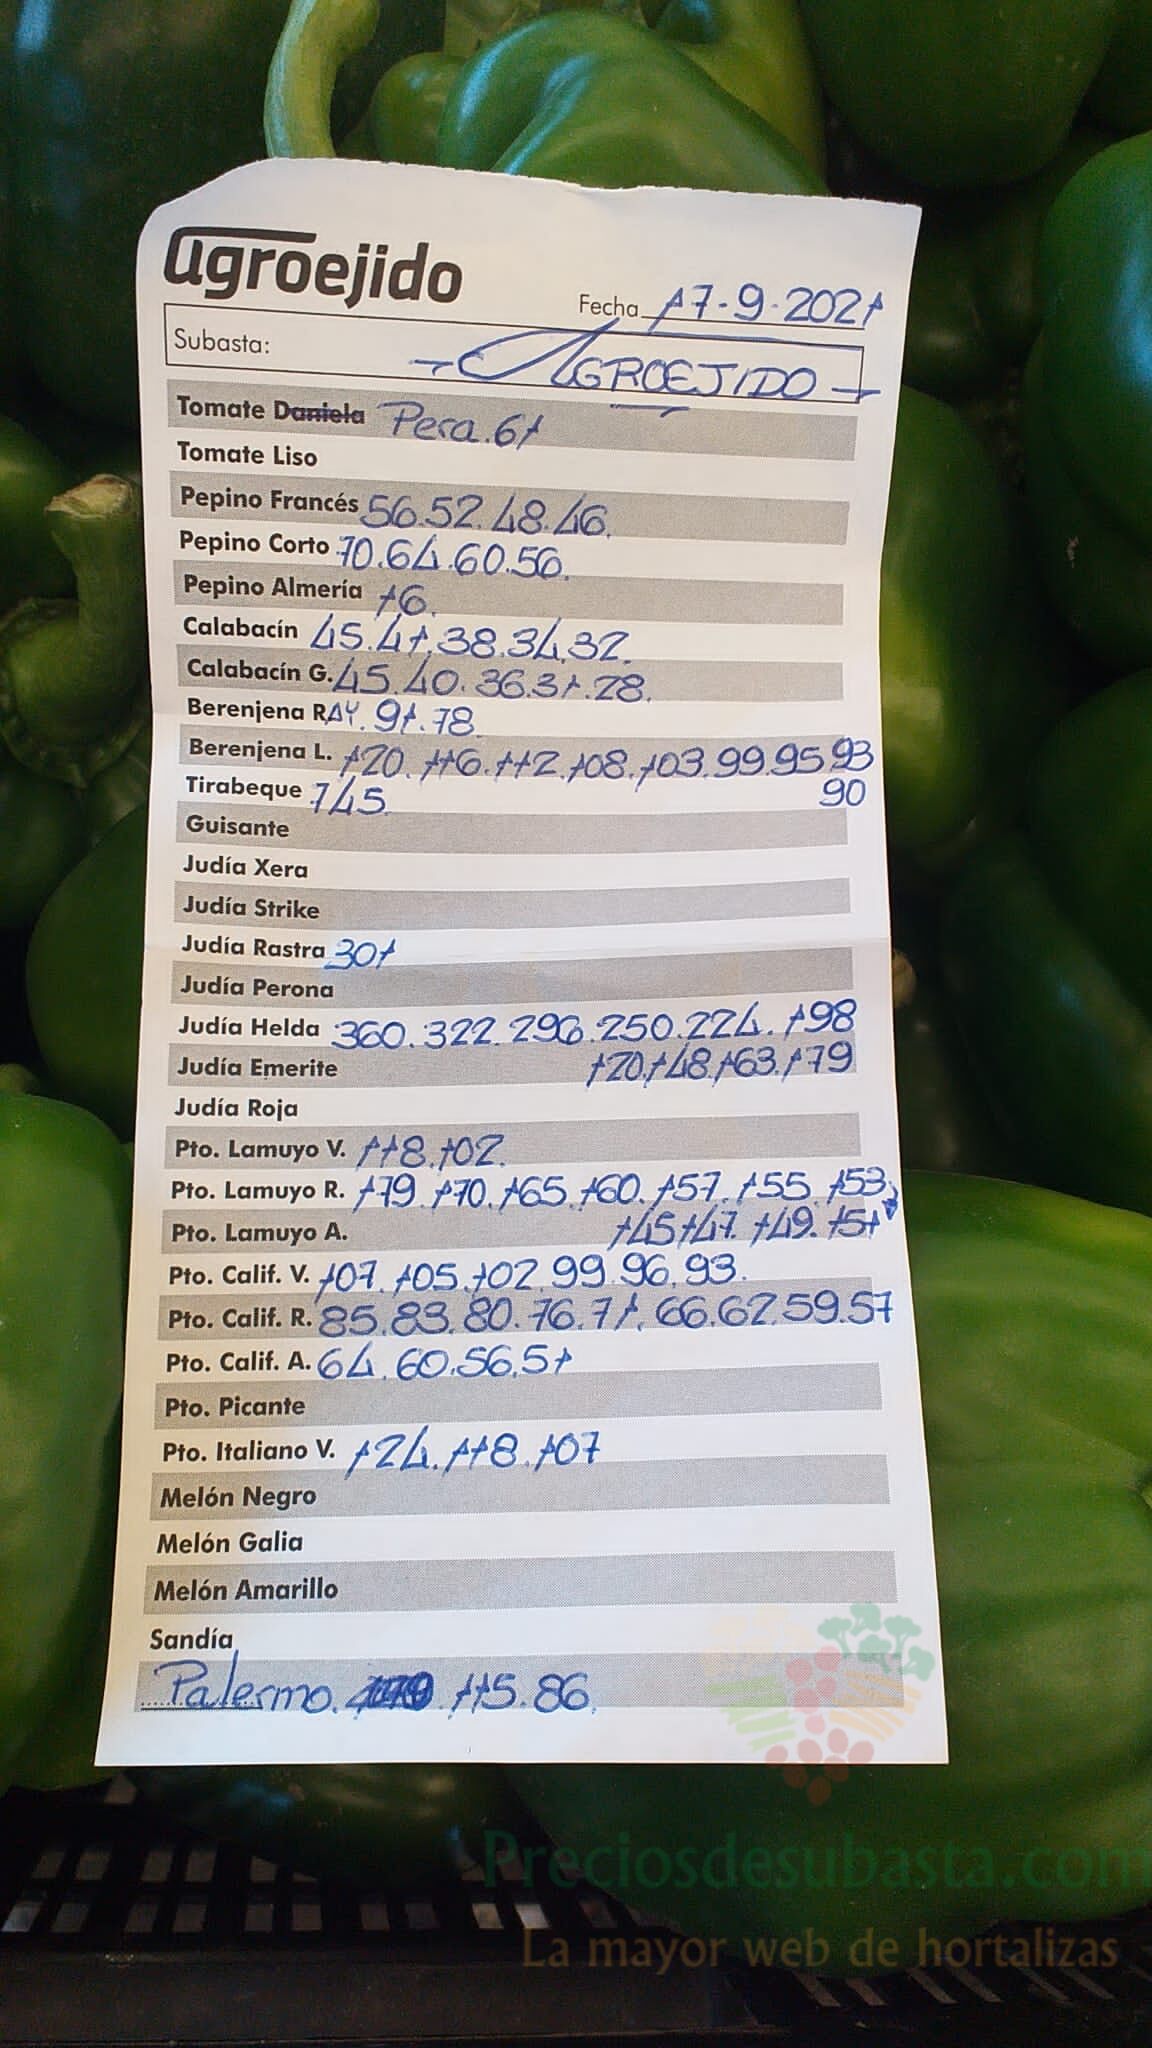 agroejido
Fecha 17-9-2021
Subasta: - AGROEJIDO -
Tomate Daniela Pera. 61
Tomate Liso
Pepino Francés 56.52.48.46.
Pepino Corto 70.64.60.56.
Pepino Almería 16.
Calabacín 45.41.38.34.32.
Calabacín G. 45.40.36.31.28.
Berenjena RAY. 91.78.
Berenjena L. 120.116.112.108.103.99.95.93
Tirabeque 745. 90
Guisante
Judía Xera
Judía Strike
Judía Rastra 301
Judía Perona
Judía Helda 360.322.296.250.224.198
Judía Emerite 120.148.163.179
Judía Roja
Pto. Lamuyo V. 118.102.
Pto. Lamuyo R. 179.170.165.160.157.155.153
Pto. Lamuyo A. 145.147.149.151
Pto. Calif. V. 107.105.102.99.96.93.
Pto. Calif. R. 85.83.80.76.71.66.62.59.57
Pto. Calif. A. 64.60.56.51
Pto. Picante
Pto. Italiano V. 124.118.107
Melón Negro
Melón Galia
Melón Amarillo
Sandía
Palermo. 115.86.
Preciosdesubasta.com
La mayor web de hortalizas